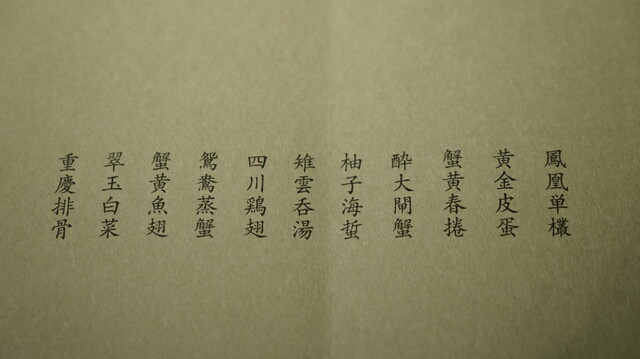 鳳凰単欉
黄金皮蛋
蟹黄春捲
酔大閘蟹
柚子海蜇
雉雲呑湯
四川鶏翅
鴛鴦蒸蟹
蟹黄魚翅
翠玉白菜
重慶排骨